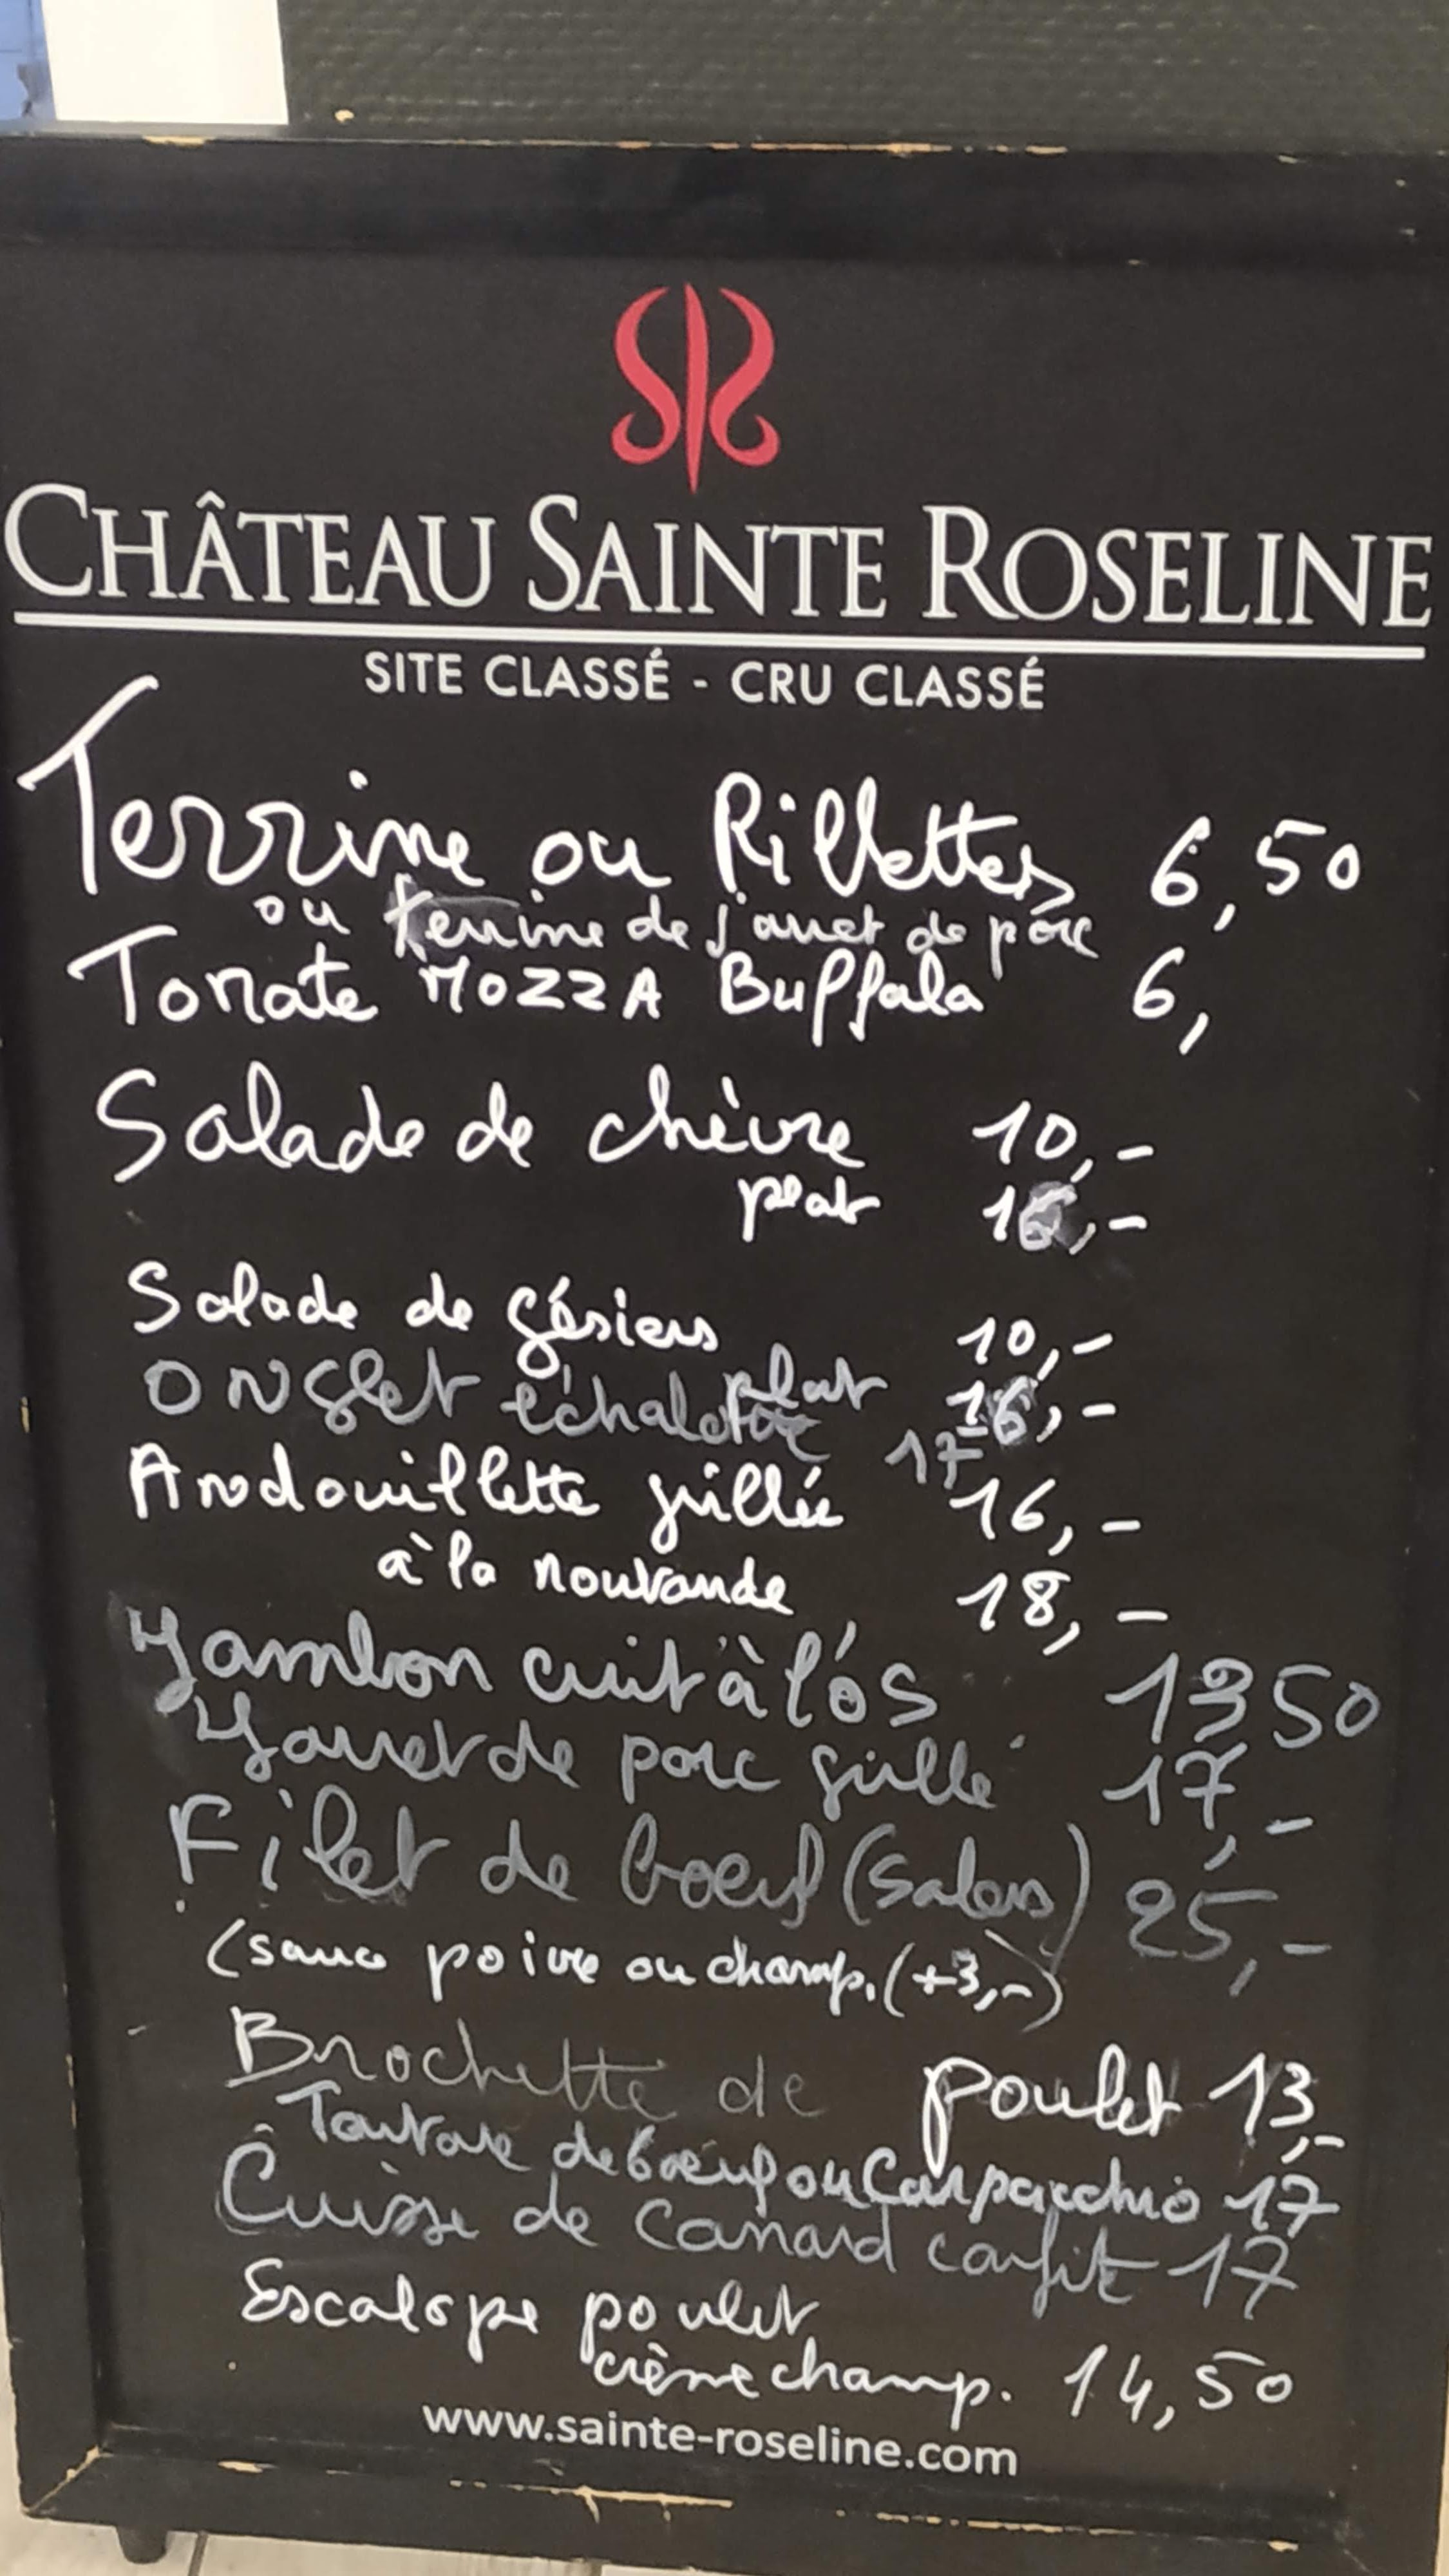 CHÂTEAU SAINTE ROSELINE
SITE CLASSÉ - CRU CLASSÉ
Terrine ou Rillettes 6,50
ou terrine de jarret de porc
Tomate MOZZA Buffala 6,
Salade de chèvre 10,-
plat 16,-
Salade de gésiers 10,-
plat 16,-
ONglet échalotte 17
Andouillette grillée 16,-
à la normande 18,-
Jambon cuit à l'ós 13 50
Jarret de porc grillé 17,-
Filet de boeuf (Salers) 25,-
(sauce poivre ou champ. (+3,-)
Brochette de poulet 13,-
Tartare de boeuf ou Carpacchio 17
Cuisse de Canard confit 17
Escalope poulet
crème champ. 14,50
www.sainte-roseline.com